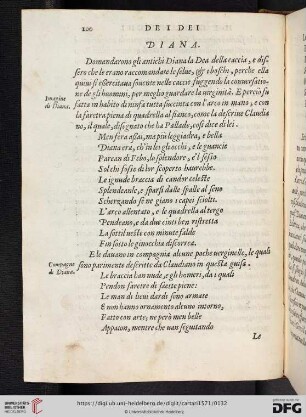 100 DE I DEI
DIANA.
Domandarono gli antichi Diana la Dea della caccia, e dis-
sero che le erano raccomandate le selue, & i boschi, perche ella
quiui si essercitaua souente nelle caccie fuggendo la conuersatio-
ne de gli huomini, per meglio guardare la verginità. E perciò fu
Imagine
di Diana.
fatta in habito di ninfa tutta succinta con l'arco in mano, e con
la faretra piena di quadrella al fianco, come la descriue Claudia
no, il quale, disegnato che ha Pallade, così dice di lei.
Men fera assai, ma più leggiadra, e bella
Diana era, ch'in lei gliocchi, e le guancie
Parean di Febo, lo splendore, e'l sesso
Solo fosse di lor scoperto haurebbe.
Le ignude braccia di candor celeste
Splendeano, e sparsi dalle spalle al seno
Scherzando se ne giano i capei sciolti.
L'arco allentato, e le quadrella al tergo
Pendeano, e da due cinti ben ristretta
La sottil veste con minute falde
Fin sotto le ginocchia discorrea.
E le dauano in compagnia alcune poche verginelle, le quali
Compagne
di Diana.
sono parimente descritte da Claudiano in questa guisa.
Le braccia han nude, e gli homeri, da i quali
Pendon faretre di saette piene:
Le man di lieui dardi sono armate
E non hanno ornamento alcuno intorno,
Fatto con arte; ne però men belle
Appaion, mentre che van seguitando
Le
https://digi.ub.uni-heidelberg.de/diglit/cartari1571/0132
© Universitätsbibliothek Heidelberg
UNIVERSITÄTS-
BIBLIOTHEK
HEIDELBERG
gefördert durch die
DFG